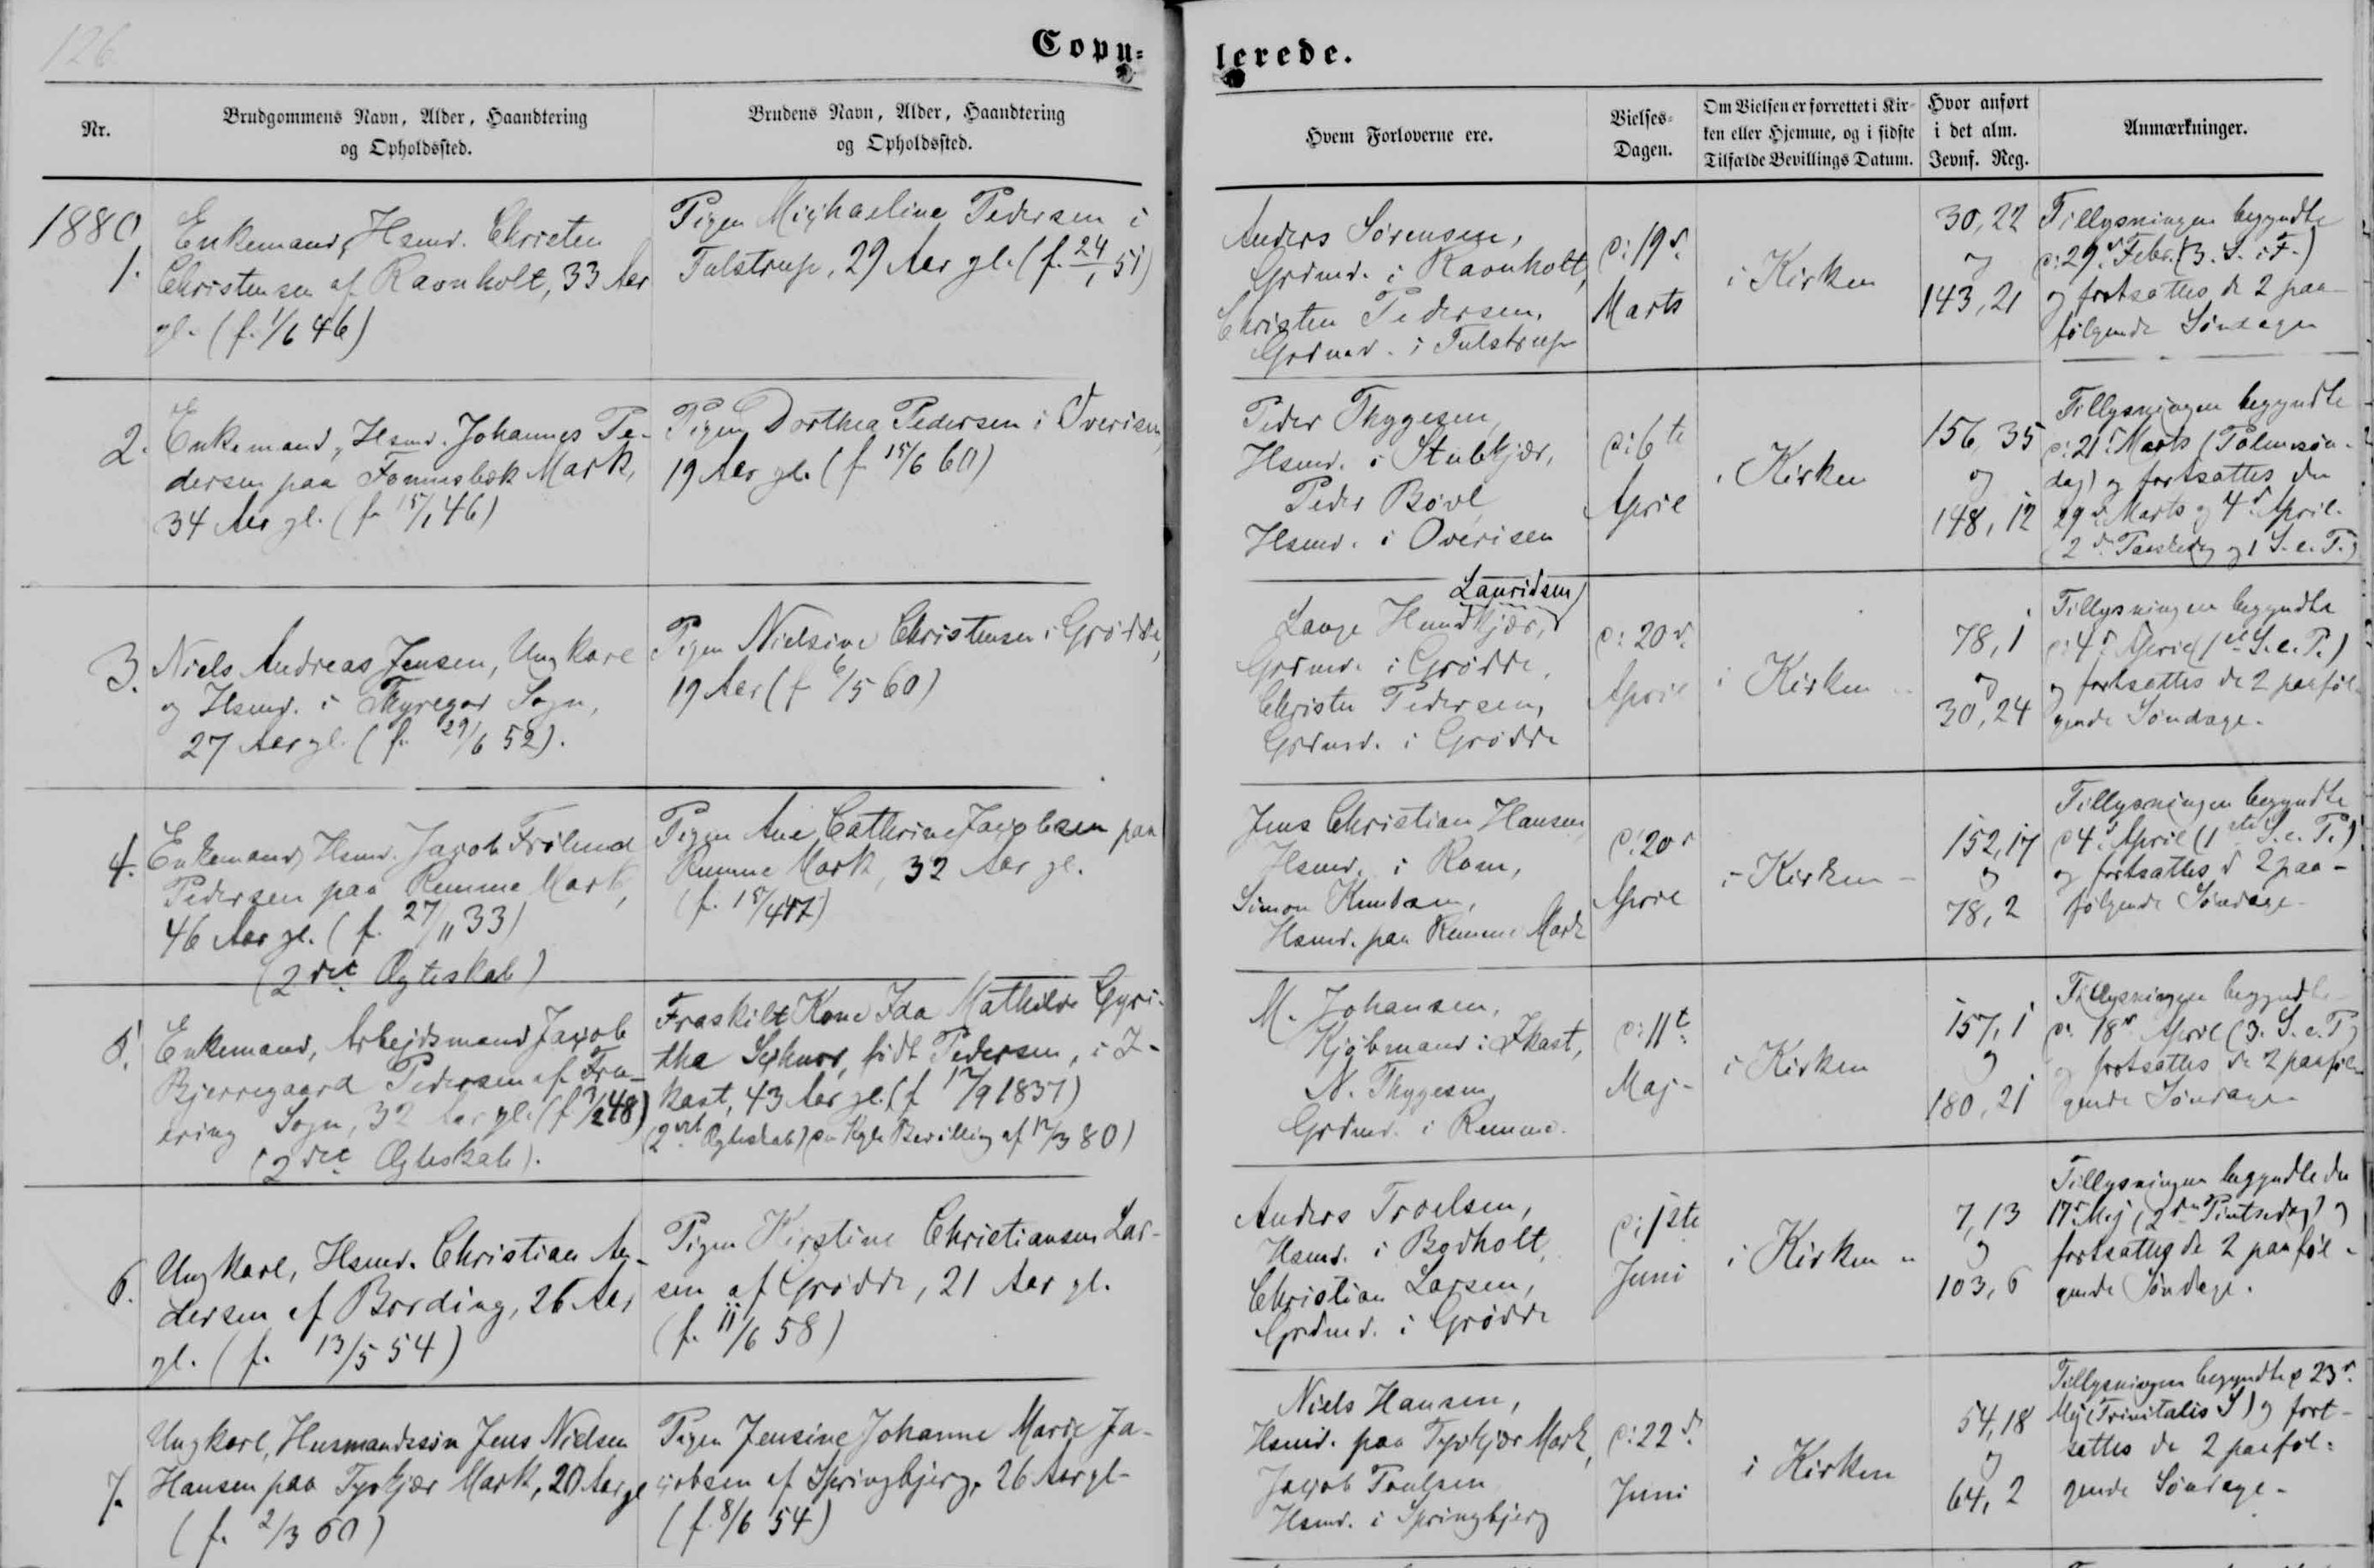 126
Copu-
lerede.
Nr.
Brudgommens Navn, Alder, Haandtering
og Opholdssted.
Brudens Navn, Alder, Haandtering
og Opholdssted.
Hvem Forloverne ere.
Vielses-
Dagen.
Om Vielsen er forrettet i Kir-
ken eller Hjemme, og i sidste
Tilfælde Bevillings Datum.
Hvor anført
i det alm.
Jevnf. Reg.
Anmærkninger.
1880
1.
Enkemand, Hsmd. Christen
Christensen af Ravnholt, 33 Aar
gl. (f. 1/6 46)
Pigen Michaeline Pedersen i
Tulstrup, 29 Aar gl. (f. 24/1 51)
Anders Sørensen,
Grdmd. i Ravnholt,
Christen Pedersen,
Grdmd. i Tulstrup
d: 19d.
Marts
i Kirken
30,22
og
143,21
Tillysningen begyndte
d: 29d Febr. (3. S. i F.)
og fortsattes de 2 paa-
følgende Søndage
2.
Enkemand, Hsmd. Johannes Pe-
dersen paa Fonnesbæk Mark,
34 Aar gl. (f. 15/1 46)
Pigen Dorthea Pedersen i Overisen,
19 Aar gl. (f 15/6 60)
Peder Thygesen,
Hsmd. i Stubkjær,
Peder Bøvl,
Hsmd. i Overisen
d: 6te
April
i Kirken
156,35
og
148,12
Tillysningen begyndte
d: 21d Marts (Palmesøn-
dag) og fortsattes den
29d Marts og 4d April.
(2d. Paaskedag og 1 S. e. P.)
3.
Niels Andreas Jensen, Ungkarl
og Hsmd. i Thyregod Sogn,
27 Aar gl. (f. 29/6 52).
Pigen Nielsine Christensen i Grødde,
19 Aar (f 6/5 60)
Lauridsen
Lauge Hundkjær,
Grdmd. i Grødde,
Christen Pedersen,
Grdmd. i Grødde
d: 20d.
April
i Kirken
78,1
og
30,24
Tillysningen begyndte
d: 4d April (1ste S. e. P.)
og fortsattes de 2 paaføl-
gende Søndage.
4.
Enkemand, Hsmd. Jacob Frølund
Pedersen paa Remme Mark,
46 Aar gl. (f. 27/11 33)
(2det Ægteskab)
Pigen Ane Cathrine Jacobsen paa
Remme Mark, 32 Aar gl.
(f. 15/4 47)
Jens Christian Hansen
Hsmd. i Rom,
Simon Knudsen,
Hsmd. paa Remme Mark
d: 20d
April
i Kirken
152,17
og
78,2
Tillysningen begyndte
d 4d April (1ste S. e. P.)
og fortsattes d 2 paa-
følgende Søndage
5.
Enkemand, Arbejdsmand Jacob
Bjerregaard Pedersen af
ering Sogn, 32 Aar gl. (f 48)
(2det Ægteskab).
Fraskilt Kone Ida Mathilde Gyri-
tha født Pedersen, i I-
kast, 43 Aar gl. (f 17/9 1837)
(2det Ægteskab) (Kgl. Bevilling af 17/3 80)
M. Johansen,
Kjøbmand i Ikast,
N. Thygesen,
Grdmd. i Remme.
d: 11te
Maj
i Kirken
157,1
og
180,21
Tillysningen begyndte
d. 18d April (3. S. e. P.)
og fortsattes de 2 paaføl-
gende Søndage
6.
Ungkarl, Hsmd. Christian An-
dersen af Bording, 26 Aar
gl. (f. 13/5 54)
Pigen Kirstine Christiansen Lar-
sen af Grødde, 21 Aar gl.
(f. 11/6 58)
Anders Troelsen,
Hsmd. i Bodholt,
Christian Larsen,
Grdmd. i Grødde
d: 1ste
Juni
i Kirken
7,13
og
103,6
Tillysningen begyndte den
17d Maj (2den Pintsedag) og
fortsattes de 2 paaføl-
gende Søndage.
7.
Ungkarl, Husmandssøn Jens Nielsen
Hansen paa Tyvkjær Mark, 20 Aar gl
(f. 2/3 60)
Pigen Jensine Johanne Marie Ja-
cobsen af Springbjerg, 26 Aar gl.
(f. 8/6 54)
Niels Hansen,
Hsmd. paa Tyvkjær Mark,
Jacob Poulsen
Hsmd. i Springbjerg
d: 22d.
Juni
i Kirken
54,18
og
64,2
Tillysningen begyndte d 23d.
Maj (Trinitatis S) og fort-
sattes de 2 paaføl-
gende Søndage.